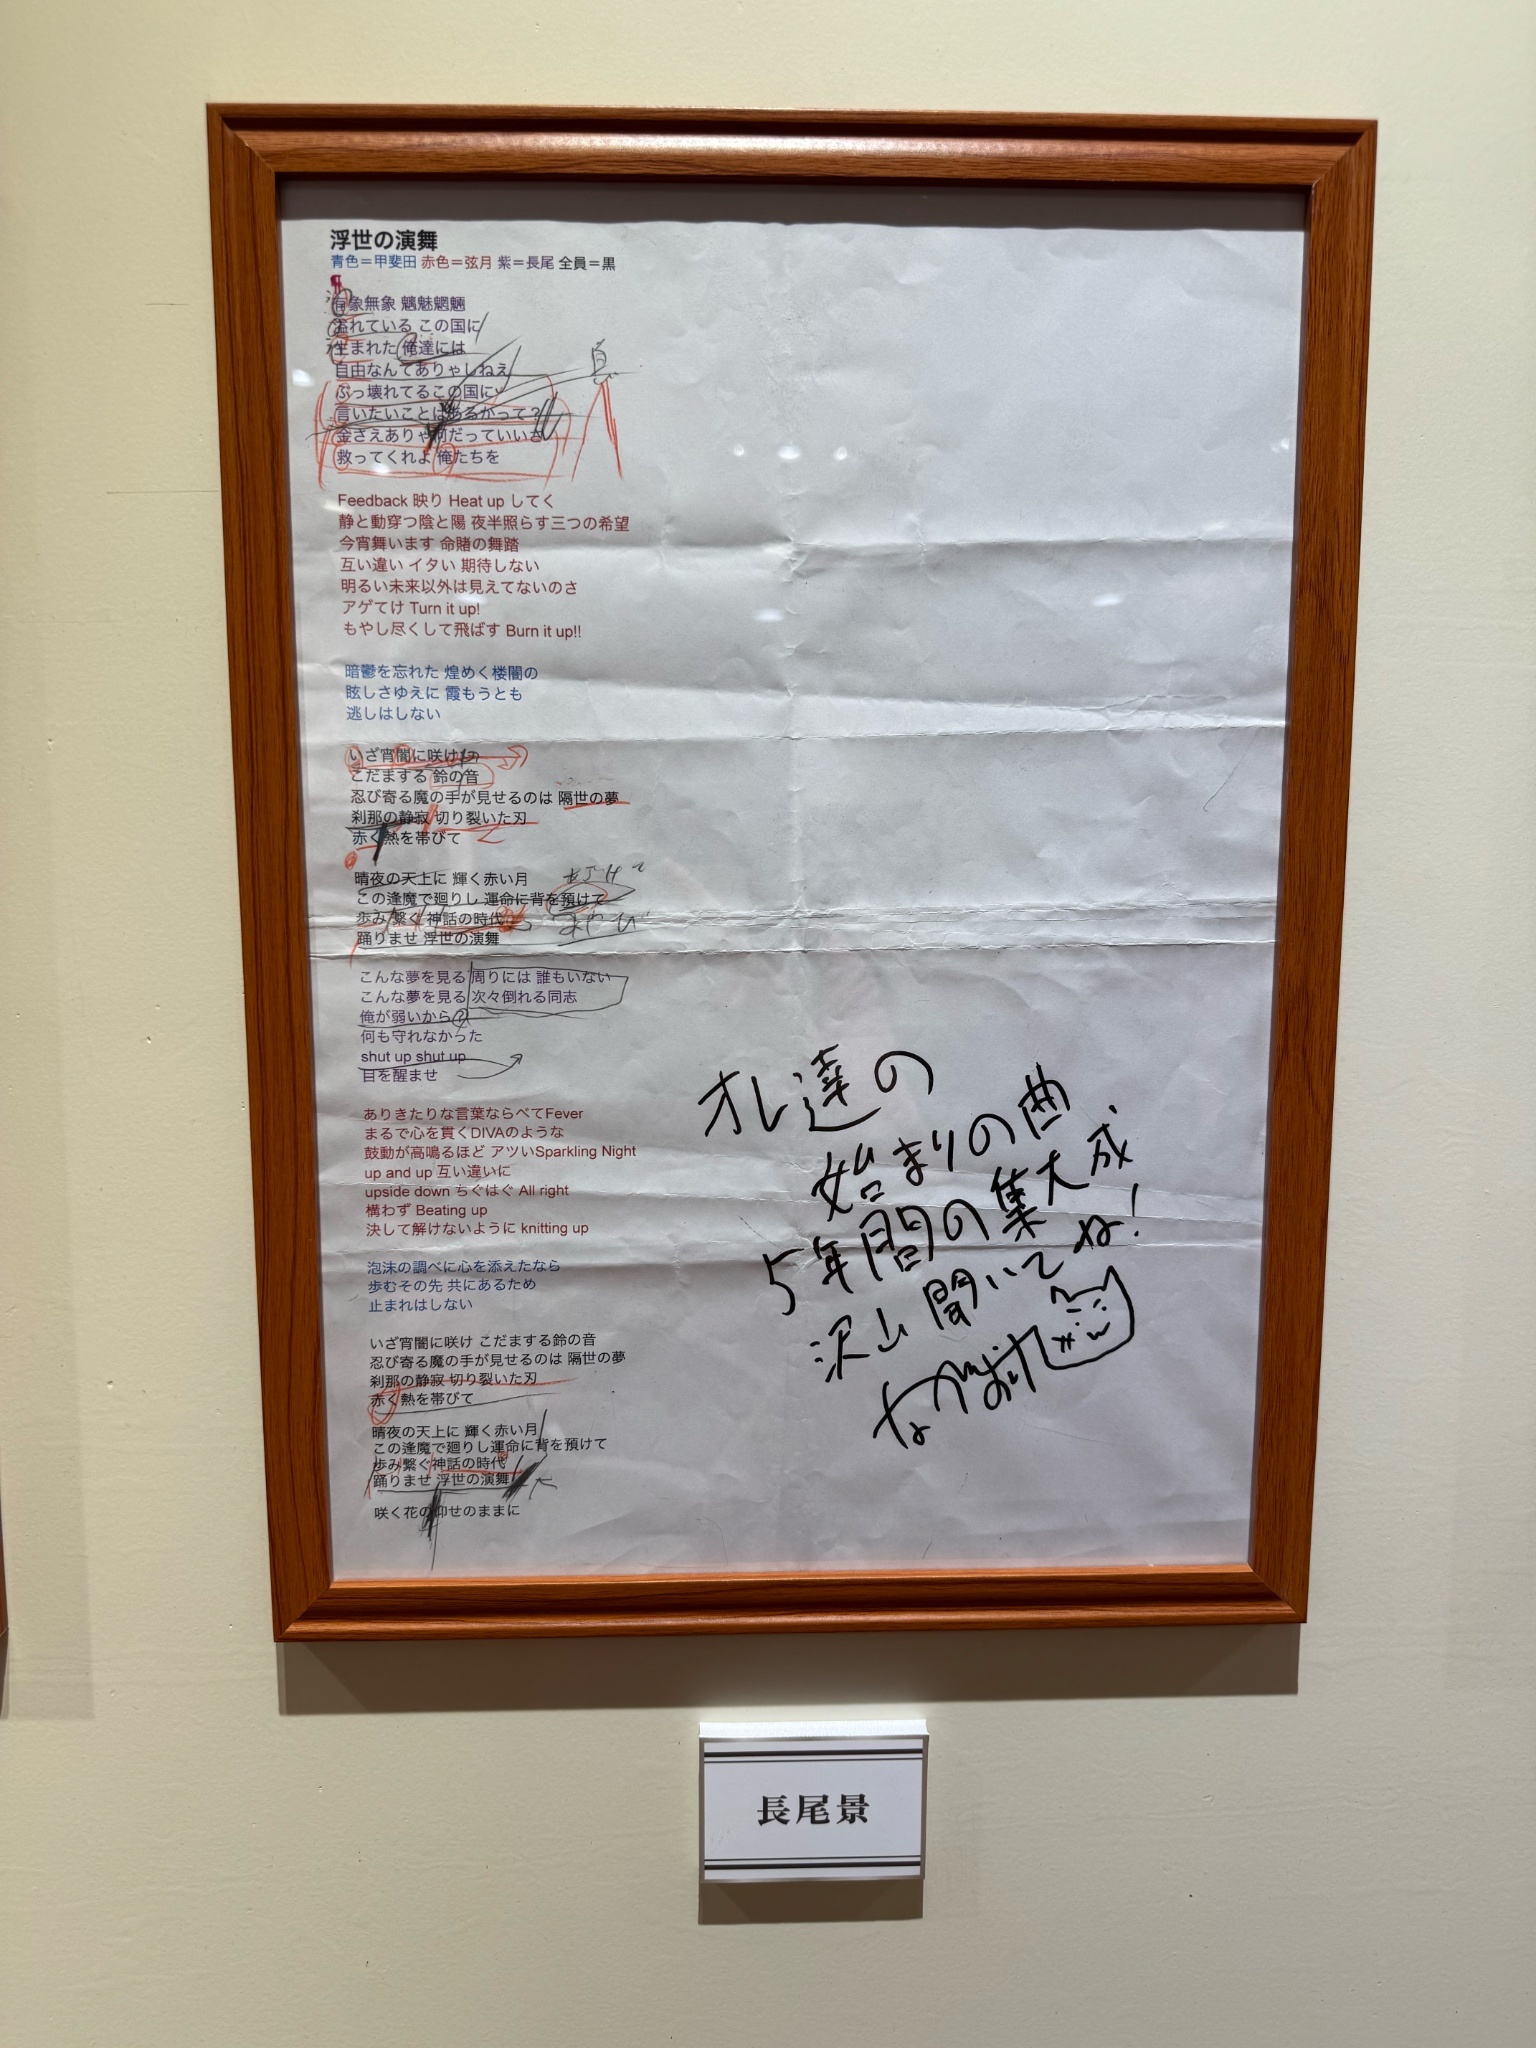 浮世の演舞
青色＝甲斐田 赤色＝弦月 紫＝長尾 全員＝黒
有象無象 魑魅魍魎
溢れている この国に
生まれた 俺達には
自由なんてありゃしねえ
ぶっ壊れてるこの国に
言いたいことはあるかって？
金さえありゃ何だっていいさ
救ってくれよ 俺たちを
息
Feedback 映り Heat up してく
静と動穿つ陰と陽 夜半照らす三つの希望
今宵舞います 命賭の舞踏
互い違い イタい 期待しない
明るい未来以外は見えてないのさ
アゲてけ Turn it up!
もやし尽くして飛ばす Burn it up!!
暗鬱を忘れた 煌めく楼闇の
眩しさゆえに 霞もうとも
逃しはしない
いざ宵闇に咲け
こだまする 鈴の音
忍び寄る魔の手が見せるのは 隔世の夢
刹那の静寂 切り裂いた刃
赤く熱を帯びて
晴夜の天上に 輝く赤い月
この逢魔で廻りし 運命に背を預けて
歩み繋ぐ 神話の時代
踊りませ 浮世の演舞
こんな夢を見る 周りには 誰もいない
こんな夢を見る 次々倒れる同志
俺が弱いから？
何も守れなかった
shut up shut up
目を醒ませ
ありきたりな言葉ならべてFever
まるで心を貫くDIVAのような
鼓動が高鳴るほど アツいSparkling Night
up and up 互い違いに
upside down ちぐはぐ All right
構わず Beating up
決して解けないように knitting up
泡沫の調べに心を添えたなら
歩むその先 共にあるため
止まれはしない
いざ宵闇に咲け こだまする鈴の音
忍び寄る魔の手が見せるのは 隔世の夢
刹那の静寂 切り裂いた刃
赤く熱を帯びて
晴夜の天上に 輝く赤い月
この逢魔で廻りし運命に背を預けて
歩み繋ぐ神話の時代
踊りませ 浮世の演舞
咲く花の仰せのままに
オレ達の
始まりの曲
5年間の集大成
沢山聞いてね!
長尾景